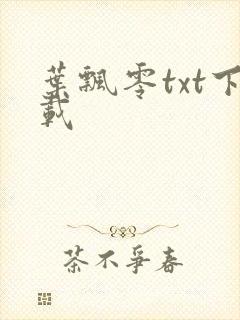 葉飄零txt下
載
茶不爭春